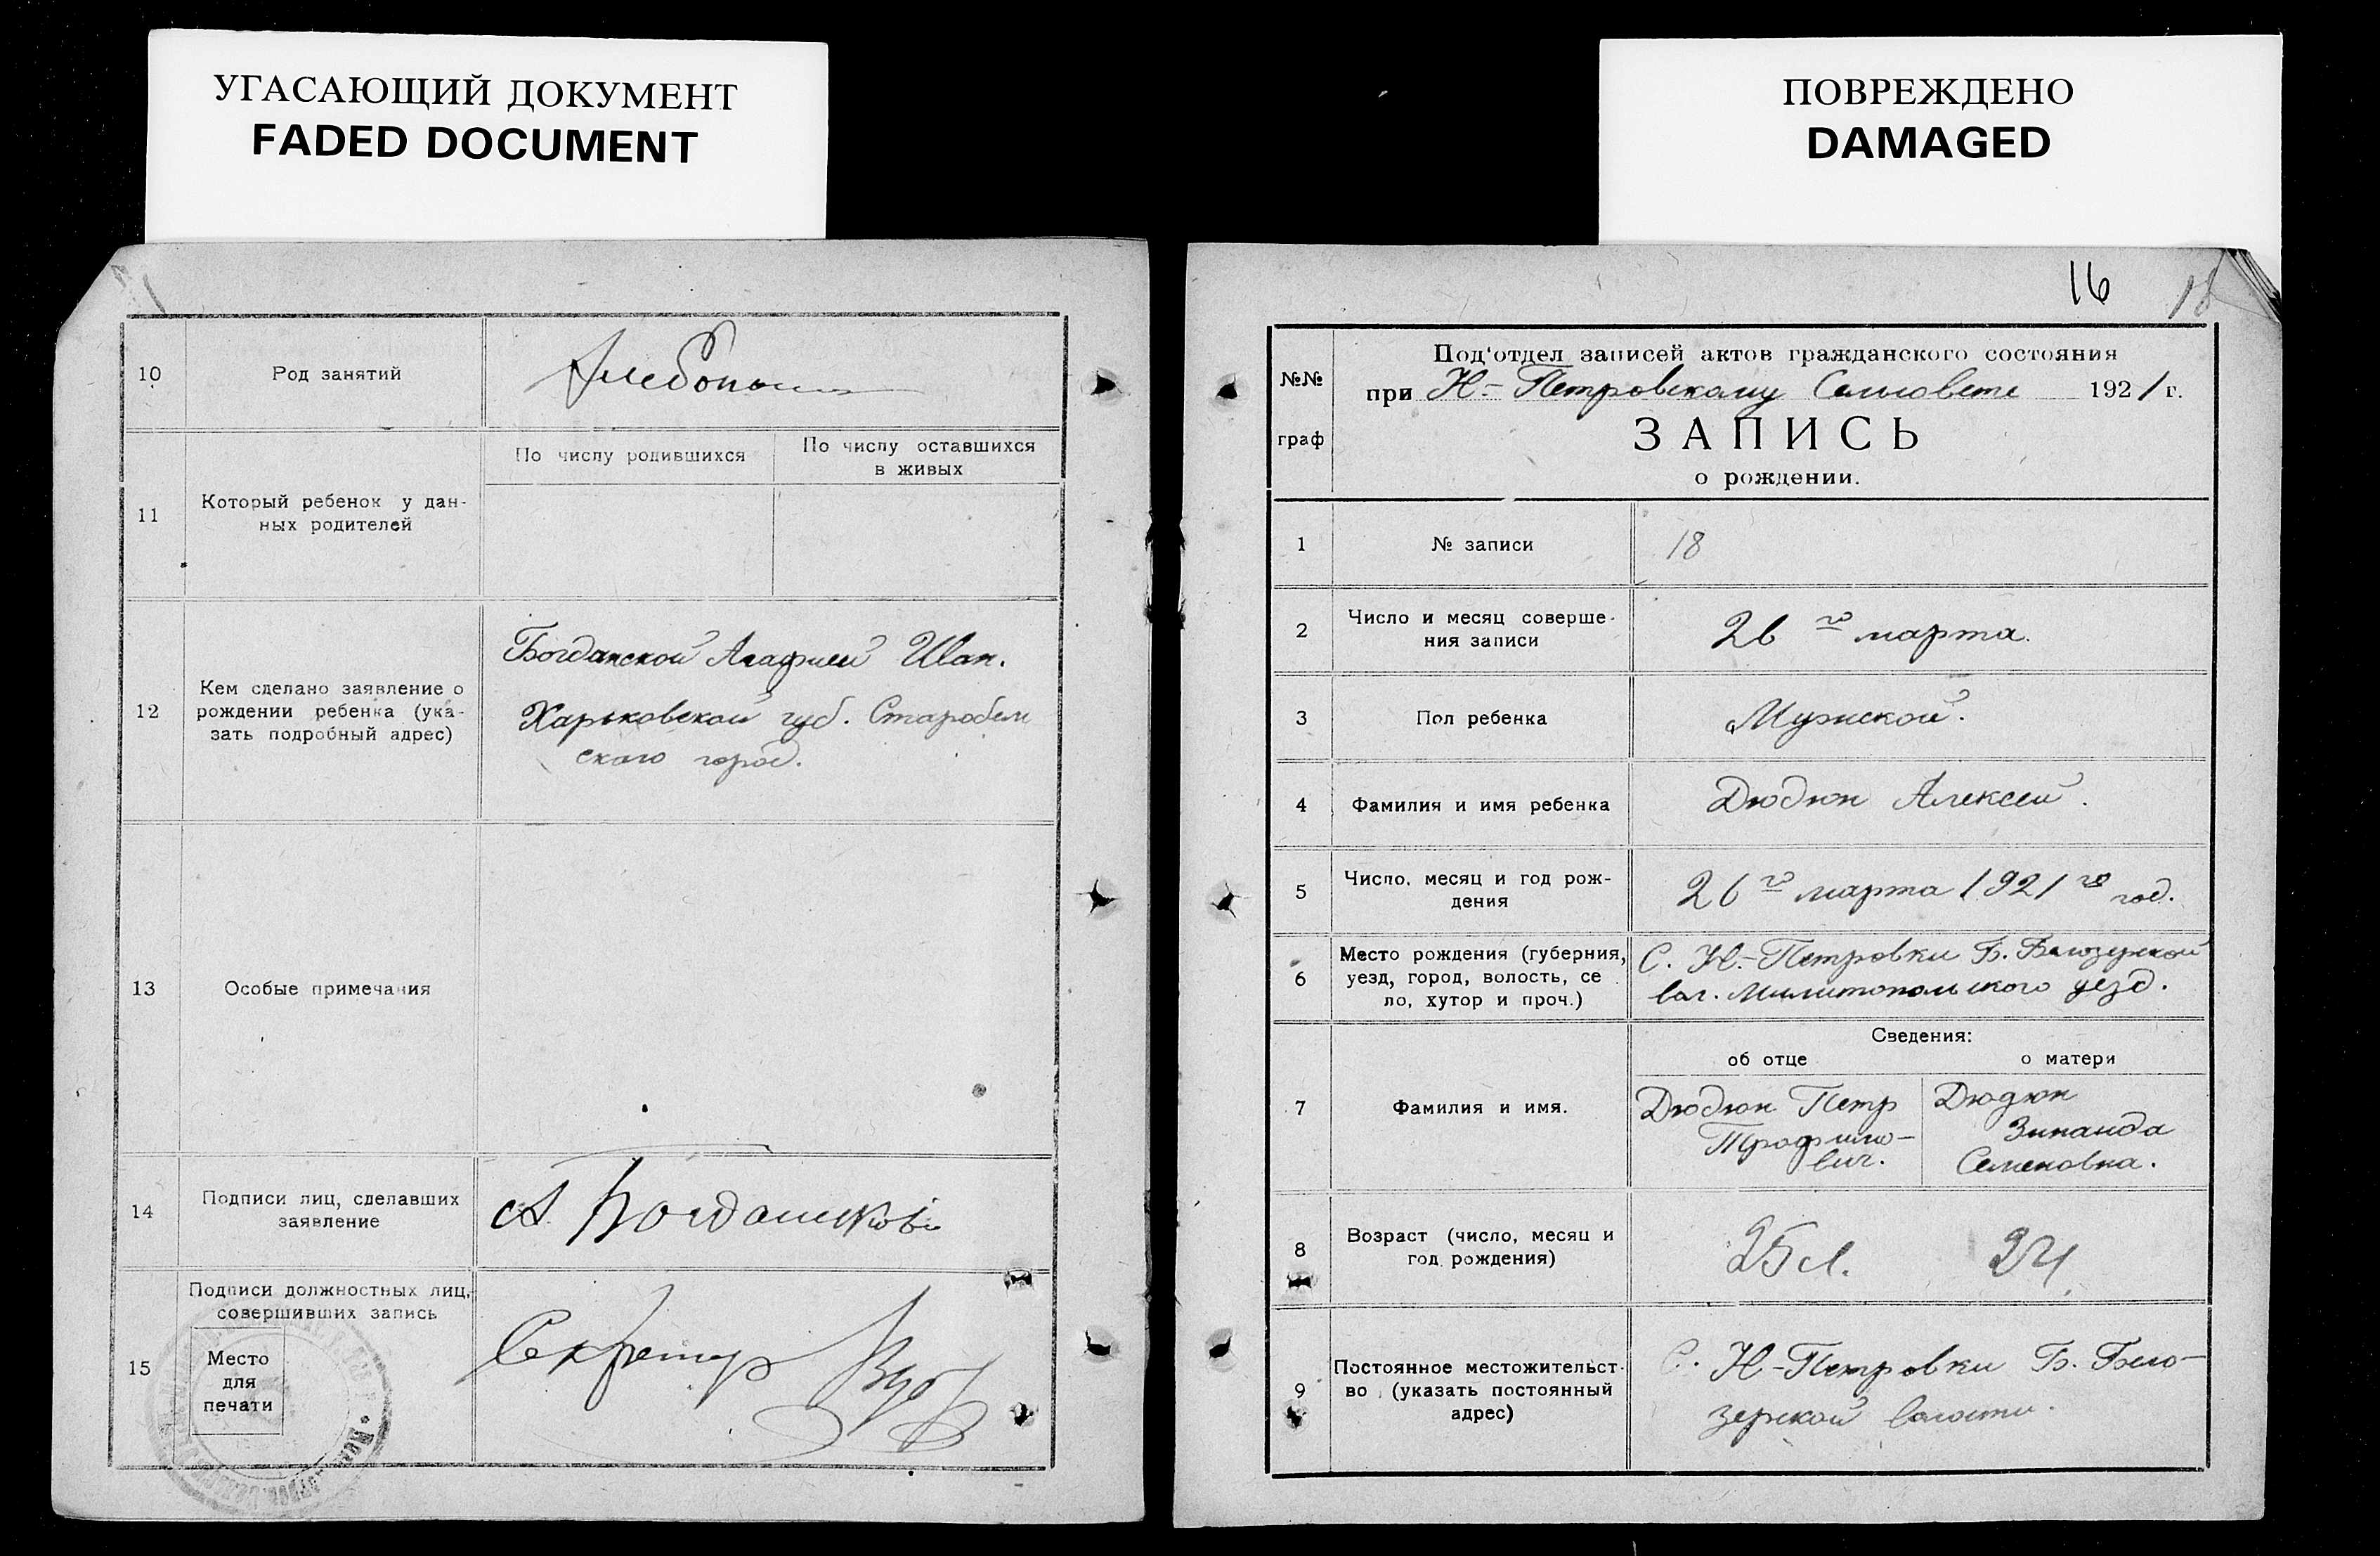 УГАСАЮЩИЙ ДОКУМЕНТ
FADED DOCUMENT
10
Род занятий
11
Который ребенок у дан-
ных родителей
По числу родившихся
По числу оставшихся
в живых
12
Кем сделано заявление о
рождении ребенка (ука-
зать подробный адрес)
Богданской Агафией Иван.
Харьковской губ. Старобель
скаго город.
13
Особые примечания
14
Подписи лиц, сделавших
заявление
А.
15
Подписи должностных лиц,
совершивших запись
Место
для
печати
Секретар
ПОВРЕЖДЕНО
DAMAGED
16
18
№№
граф
Под'отдел записей актов гражданского состояния
при Н.-Петровскому Сельсовете 1921 г.
ЗАПИСЬ
о рождении.
1
№ записи
18
2
Число и месяц соверше-
ния записи
26 го марта.
3
Пол ребенка
Мужской.
4
Фамилия и имя ребенка
Дюдюн Алексей.
5
Число, месяц и год рож-
дения
26 го марта 1921 го год.
6
Место рождения (губерния,
уезд, город, волость, се
ло, хутор и проч.)
С. Н.-Петровки Б. Белозерской
вол. Милитопольского уезд.
Сведения:
об отце
о матери
7
Фамилия и имя.
Дюдюн Петр
Трофимо-
вич.
Дюдюн
Зинаида
Семеновна.
8
Возраст (число, месяц и
год рождения)
25 л.
24
9
Постоянное местожительст-
во (указать постоянный
адрес)
С. Н-Петровки Б. Бело-
зерской волости.